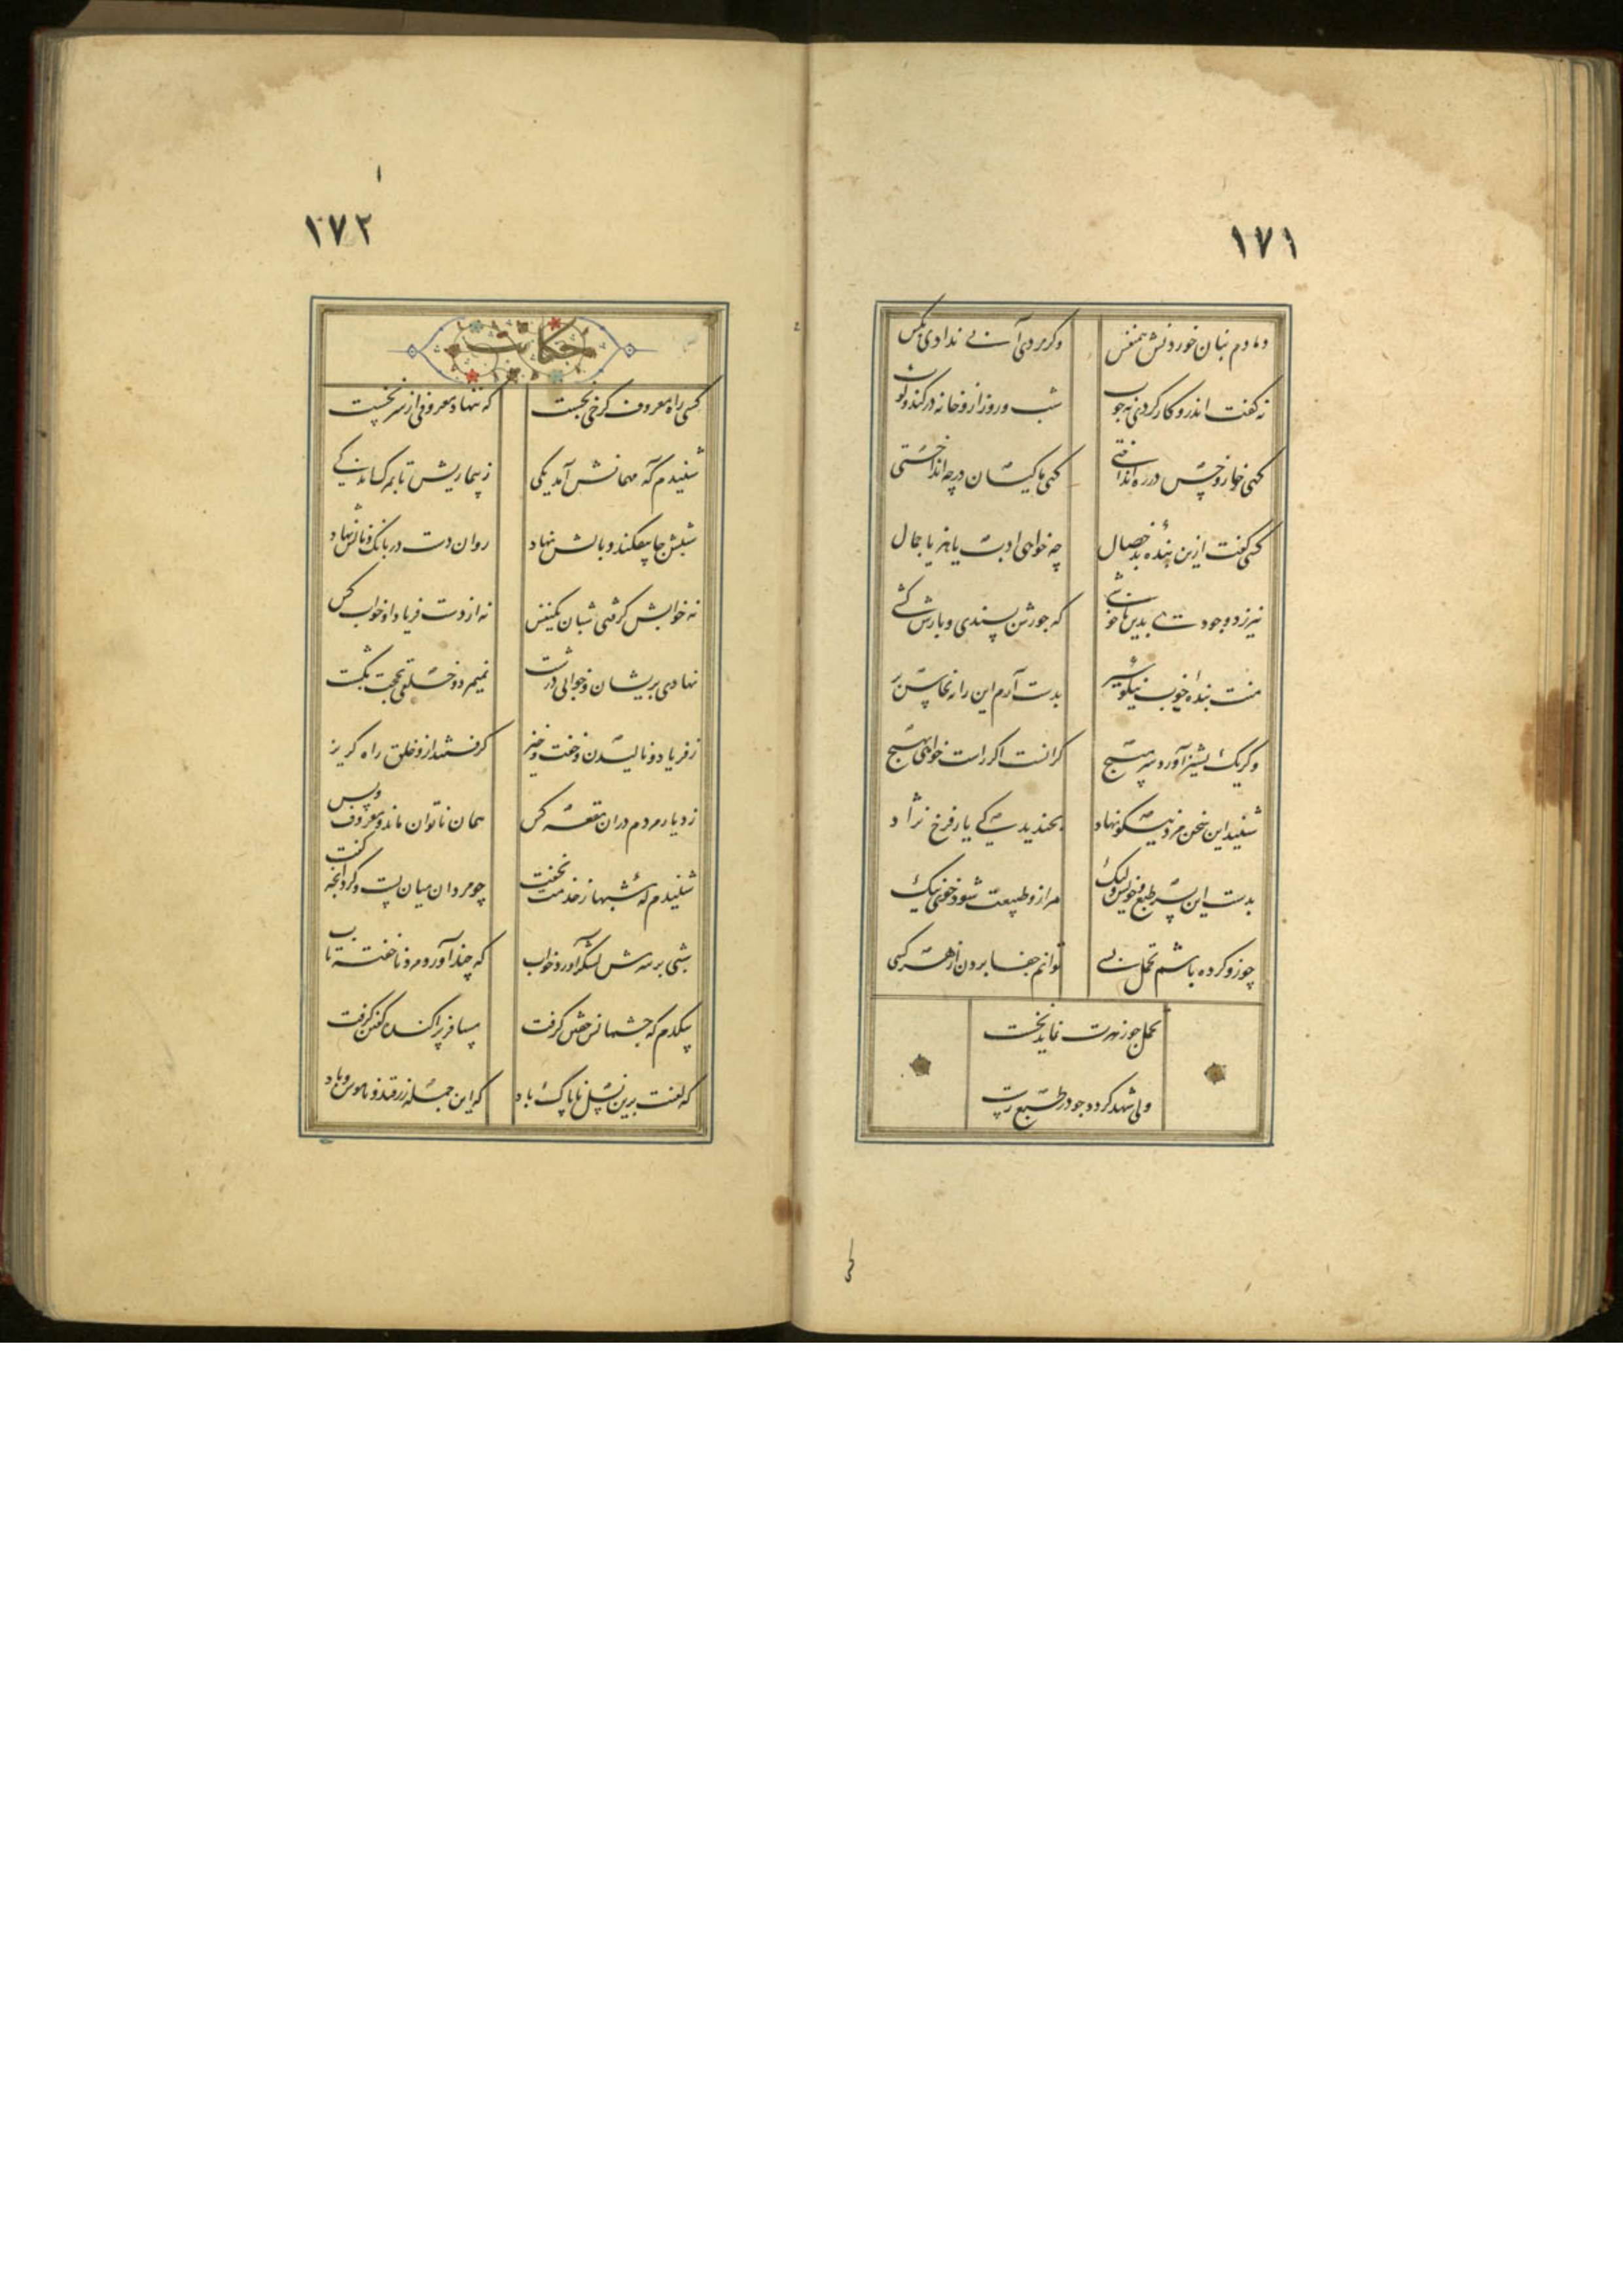 ۱۷۱
دمادم بنان خوردنش همنفس
وگر مردی آبش ندادی بکس
نه گفت اندرو کار کردی نه چوب
شب و روز ازو خانه در کند و کوب
گهی خار و خس در ره انداختی
گهی ماکیان در چه انداختی
کسی گفت ازین بنده بد خصال
چه خواهی ادب یا هنر یا جمال
نیرزد وجودی بدین ناخوشی
که جورش پسندی و بارش کشی
منت بنده خوب نیکو سیر
بدست آرم این را به نخاس بر
وگر یک پشیز آورد سر مپیچ
گرانست اگر راست خواهی بهیچ
شنید این سخن مرد نیکو نهاد
بخندید کای یار فرخ نژاد
بدست این پسر طبع و خویش ولیک
مرا زو طبیعت شود خوی نیک
چو زو کرده باشم تحمل بسی
توانم جفا بردن از هر کسی
تحمل چو زهرت نماید نخست
ولی شهد گردد چو در طبع رست
۱۷۲
حکایت
کسی راه معروف کرخی بجست
که ننهاد معروفی از سر نخست
شنیدم که مهمانش آمد یکی
ز بیماریش تا بمرگ اندکی
شبش جا بیفکند و بالش نهاد
روان دست در بانگ و نالش نهاد
نه خوابش گرفتی شبان یکنفس
نه از دست فریاد او خواب کس
نهادی پریشان و خویی درشت
نمیمرد و خلقی بحجت بکشت
ز فریاد و نالیدن و خفت و خیز
گرفتند ازو خلق راه گریز
ز دیار مردم در آن بقعه کس
همان ناتوان ماند و معروف و بس
شنیدم که شبها ز خدمت نخفت
چو مردان میان بست و کرد آنچه گفت
شبی بر سرش لشکر آورد خواب
که چند آورد مرد ناخفته تاب
بیکدم که چشمانش خفتن گرفت
مسافر پراکنده گفتن گرفت
که لعنت برین نسل ناپاک باد
که این جمله زرقند و ناموس و باد